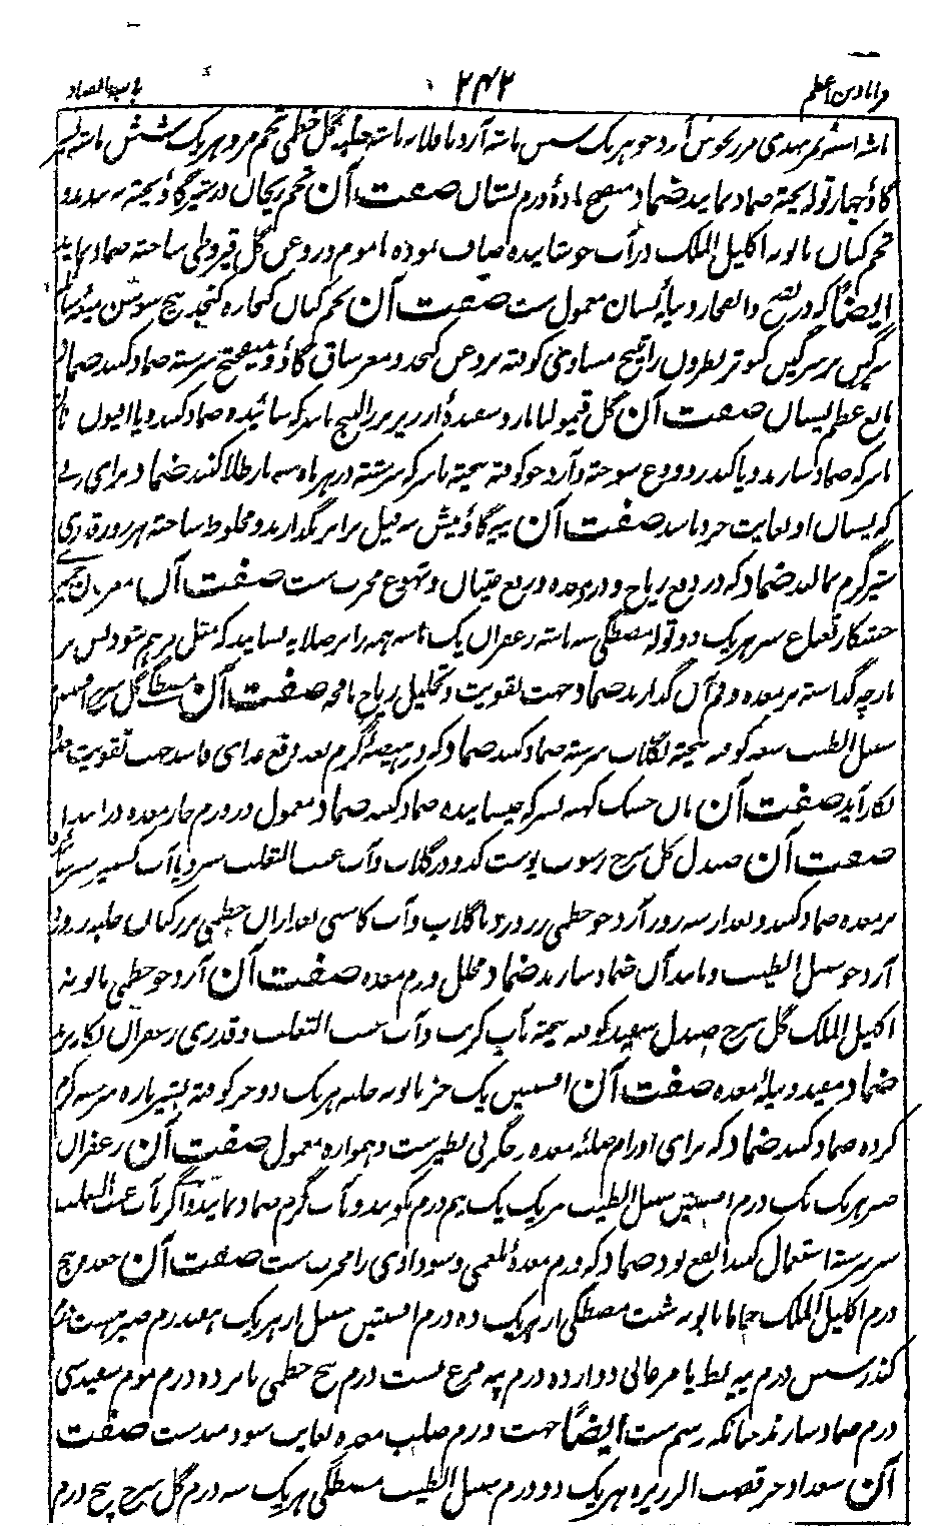 قرابادین اعظم ۲۴۲ باب الضاد
ماشه اشنه تمر هندی مرزنجوش آرد جو هر یک شش ماشه آرد باقلا نه ماشه حلبه گل خطمی تخم مرو هر یک شش ماشه
گاؤ چهار توله پخته ضماد نمایند ضماد منضج مادهٔ ورم پستان صفت آن تخم ریحان در شیر گاؤ پخته
تخم کتان بابونه اکلیل الملک در آب جوشانیده صاف نموده با موم و روغن گل قیروطی ساخته ضماد نمایند
ایضاً که در نضج و انفجار دبیلهٔ پستان معمول ست صفت آن تخم کتان کنجاره کنجد بیخ سوسن میعه سائله
سرگین کبوتر نطرون راتینج مساوی کوفته بروغن کنجد و مغز ساق گاؤ و میفختج سرشته ضماد کنند ضماد
مانع عظم پستان صفت آن گل قیمولیا مازو سفیدهٔ ارزیز بزر البنج با سرکه سائیده ضماد کنند و یا افیون
با سرکه ضماد سازند و یا کندر و ودع سوخته و آرد جو کوفته بیخته با سرکه سرشته در هر ماه سه بار طلا کنند ضماد برای زنی
که پستان او بغایت خرد باشد صفت آن پیه گاؤمیش پیه فیل برابر بگدازند و مخلوط ساخته هر روز قدری
شیر گرم بمالند ضماد که در دفع ریاح و درد معده و رفع غثیان و تهوع مجرب ست صفت آن
هر یک دو توله مصطگی سه ماشه زعفران یک ماشه همه را بر صلایه بسایند که مثل مرهم شود پس بر
پارچه گذاشته بر معده و فم آن گذارند ضماد جهت تقویت و تحلیل ریاح نافع صفت آن مصطگی گل سرخ
سنبل الطیب سعد کوفته بیخته بگلاب سرشته ضماد کنند ضماد که در هیضهٔ گرم بعد دفع غذای فاسد جهت تقویت معده
بکار آید صفت آن نان خشک کهنه بسرکه خیسانیده ضماد کنند ضماد معمول در ورم حار معده در ابتدا
صفت آن صندل گل سرخ رسوت پوست کدو در گلاب و آب عنب الثعلب سبز و یا آب کشنیز سبز
بر معده ضماد کنند و بعد از سه روز آرد جو خطمی زرورد با گلاب و آب کاسنی بعد ازان خطمی بزر کتان حلبه
آرد جو سنبل الطیب و مانند آن ضماد سازند ضماد محلل ورم معده صفت آن آرد جو خطمی بابونه
اکلیل الملک گل سرخ صندل سفید کوفته بیخته بآب کرنب و آب عنب الثعلب و قدری زعفران بکار برند
ضماد مفید دبیلهٔ معده صفت آن افسنتین یک جز بابونه حلبه هر یک دو جز کوفته بشیر تازه سرشته گرم
کرده ضماد کنند ضماد که برای اورام صلبهٔ معده و جگر بی نظیرست و همواره معمول صفت آن زعفران
صبر هر یک یک درم افسنتین سنبل الطیب هر یک یک نیم درم بکوبند و بآب گرم ضماد نمایند و اگر بآب عنب الثعلب
سبز سرشته استعمال کنند انفع بود ضماد که ورم معدهٔ بلغمی و سوداوی را مجرب ست صفت آن
درم اکلیل الملک حماما بابونه شبت مصطگی از هر یک ده درم افسنتین سنبل از هر یک هفت درم صبر بیست درم
کندر شش درم پیه بط یا مرغابی دوازده درم پیه مرغ بست درم بیخ خطمی پانزده درم موم سفید سی
درم ضماد سازند چنانکه رسم ست ایضاً جهت ورم صلب معده بغایت سودمندست صفت
آن سعد اذخر قصب الذریره هر یک دو درم سنبل الطیب مصطگی هر یک سه درم گل سرخ پنج درم